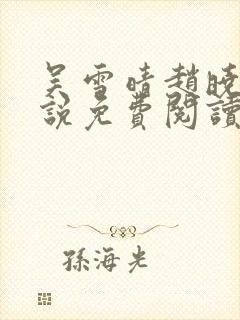 吴雪晴趙曉
說免費閱讀
孫海光